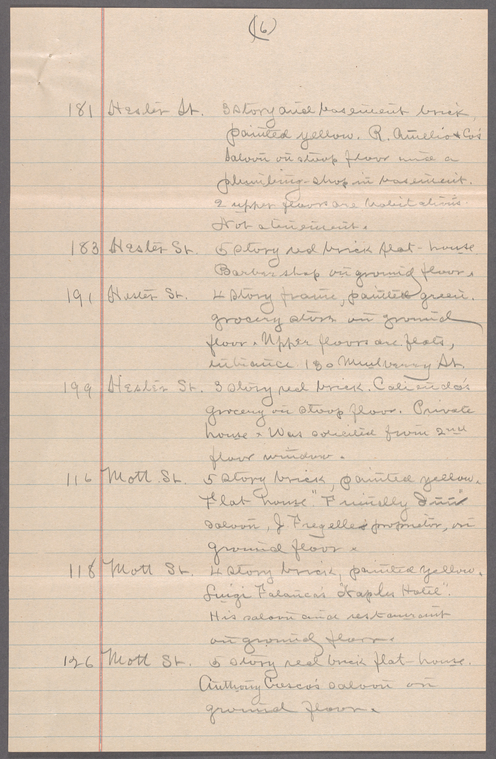 (6)
181 Hester St. 3 story and basement brick,
painted yellow. R. Amelio & Co's
saloon on stoop floor and a
plumbing-shop in basement.
2 upper floors are habitations.
Not a tenement.
183 Hester St. 5 story red brick flat-house
Barber shop on ground floor.
191 Hester St. 4 story frame, painted green.
grocery store on ground
floor. Upper floors are flats,
entrance 130 Mulberry St.
199 Hester St. 3 story red brick.
grocery on stoop floor. Private
house. Was solicited from 2nd
floor window.
116 Mott St. 5 story brick, painted yellow.
Flat house. "Friendly Inn"
saloon, J. proprietor, on
ground floor.
118 Mott St. 4 story brick, painted yellow.
Luigi "Naples Hotel".
His saloon and restaurant
on ground floor.
126 Mott St. 5 story red brick flat-house.
Anthony Cresco's saloon on
ground floor.